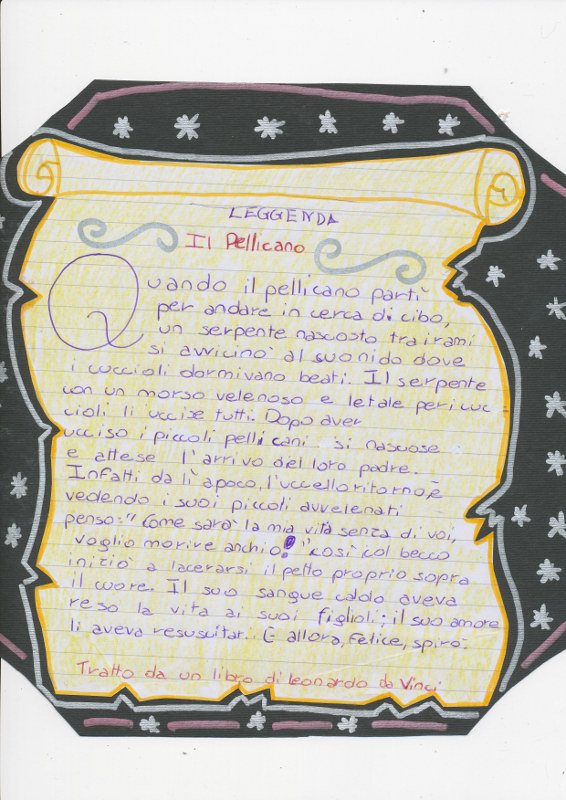 LEGGENDA
Il Pellicano
Quando il pellicano partì
per andare in cerca di cibo,
un serpente nascosto tra i rami
si avvicinò al suo nido dove
i cuccioli dormivano beati. Il serpente
con un morso velenoso e letale per i cuc=
cioli li uccise tutti. Dopo aver
ucciso i piccoli pellicani si nascose
e attese l'arrivo del loro padre.
Infatti da lì a poco, l'uccello ritornò, e
vedendo i suoi piccoli avvelenati
pensò: "Come sarà la mia vita senza di voi,
voglio morire anch'io!" così col becco
iniziò a lacerarsi il petto proprio sopra
il cuore. Il suo sangue caldo aveva
reso la vita ai suoi figlioli; il suo amore
li aveva resuscitati. E allora, felice, spirò.
Tratto da un libro di leonardo da Vinci